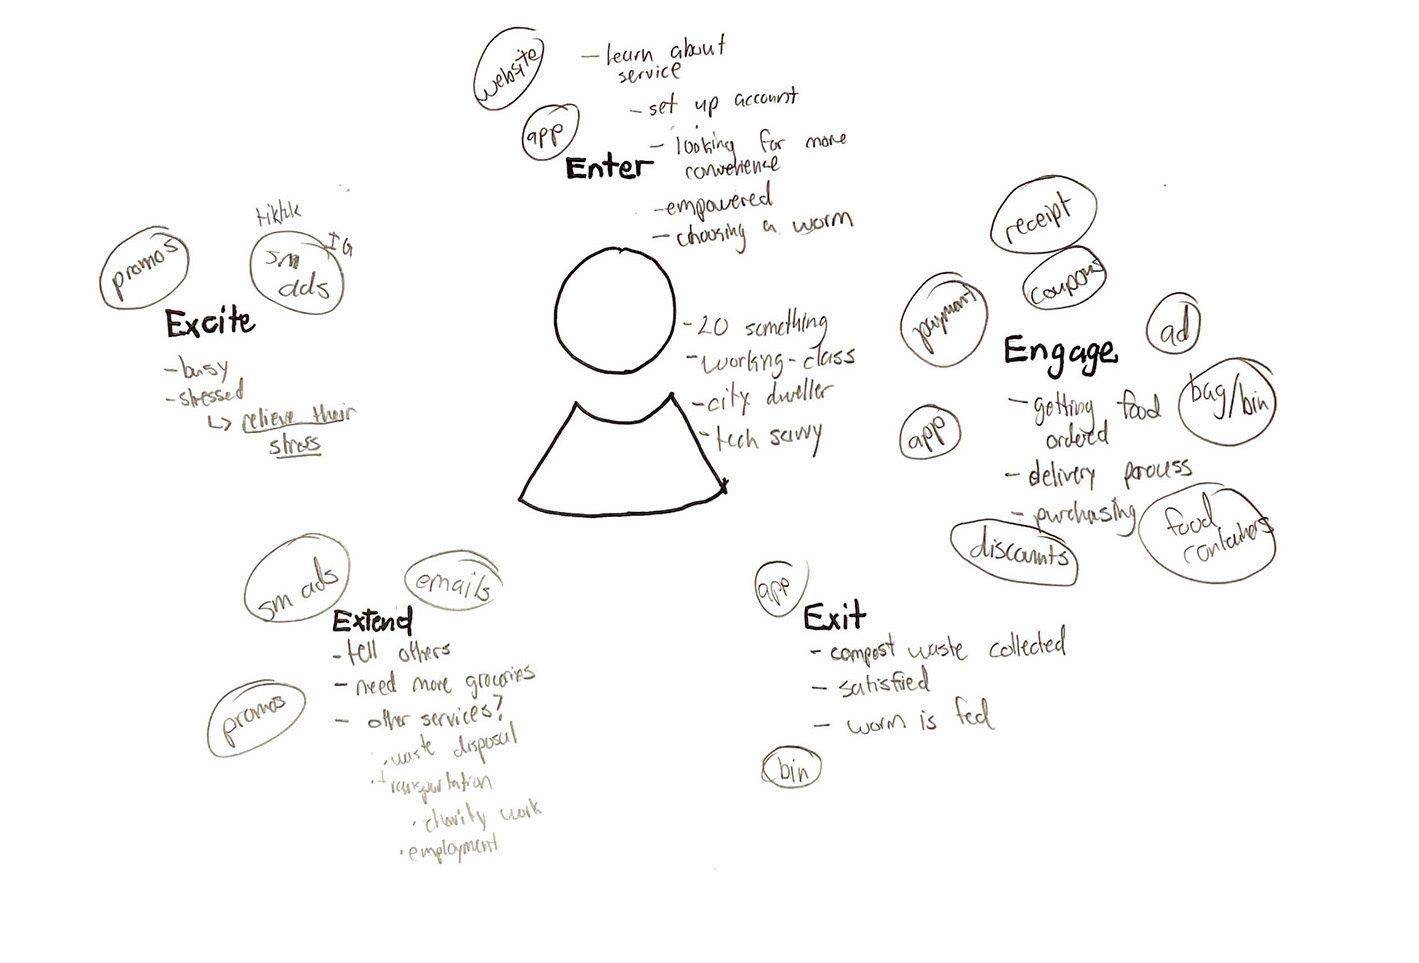 website
app
Enter
- learn about
service
- set up account
- looking for more
convenience
- empowered
- choosing a worm
promos
tiktok
IG
sm
ads
Excite
- busy
- stressed
↳ relieve their
stress
- 20 something
- working-class
- city dweller
- tech savvy
receipt
coupons
payment
ad
Engage
app
bag/bin
- getting food
ordered
- delivery process
- purchasing
discounts
food
containers
sm ads
emails
promos
Extend
- tell others
- need more groceries
- other services?
· waste disposal
· transportation
· charity work
· employment
app
Exit
- compost waste collected
- satisfied
- worm is fed
bin